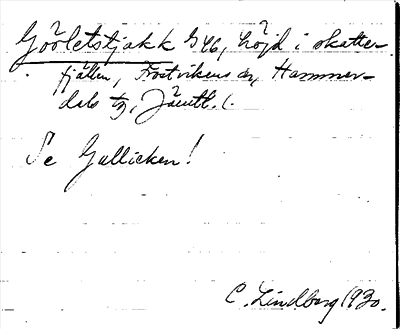 Gööletstjakk 946, höjd i skatte-
fjällen, Frostvikens sn, Hammer-
dals tg, Jämtl. l.
Se Gallieken!
C. Lindberg 1930.